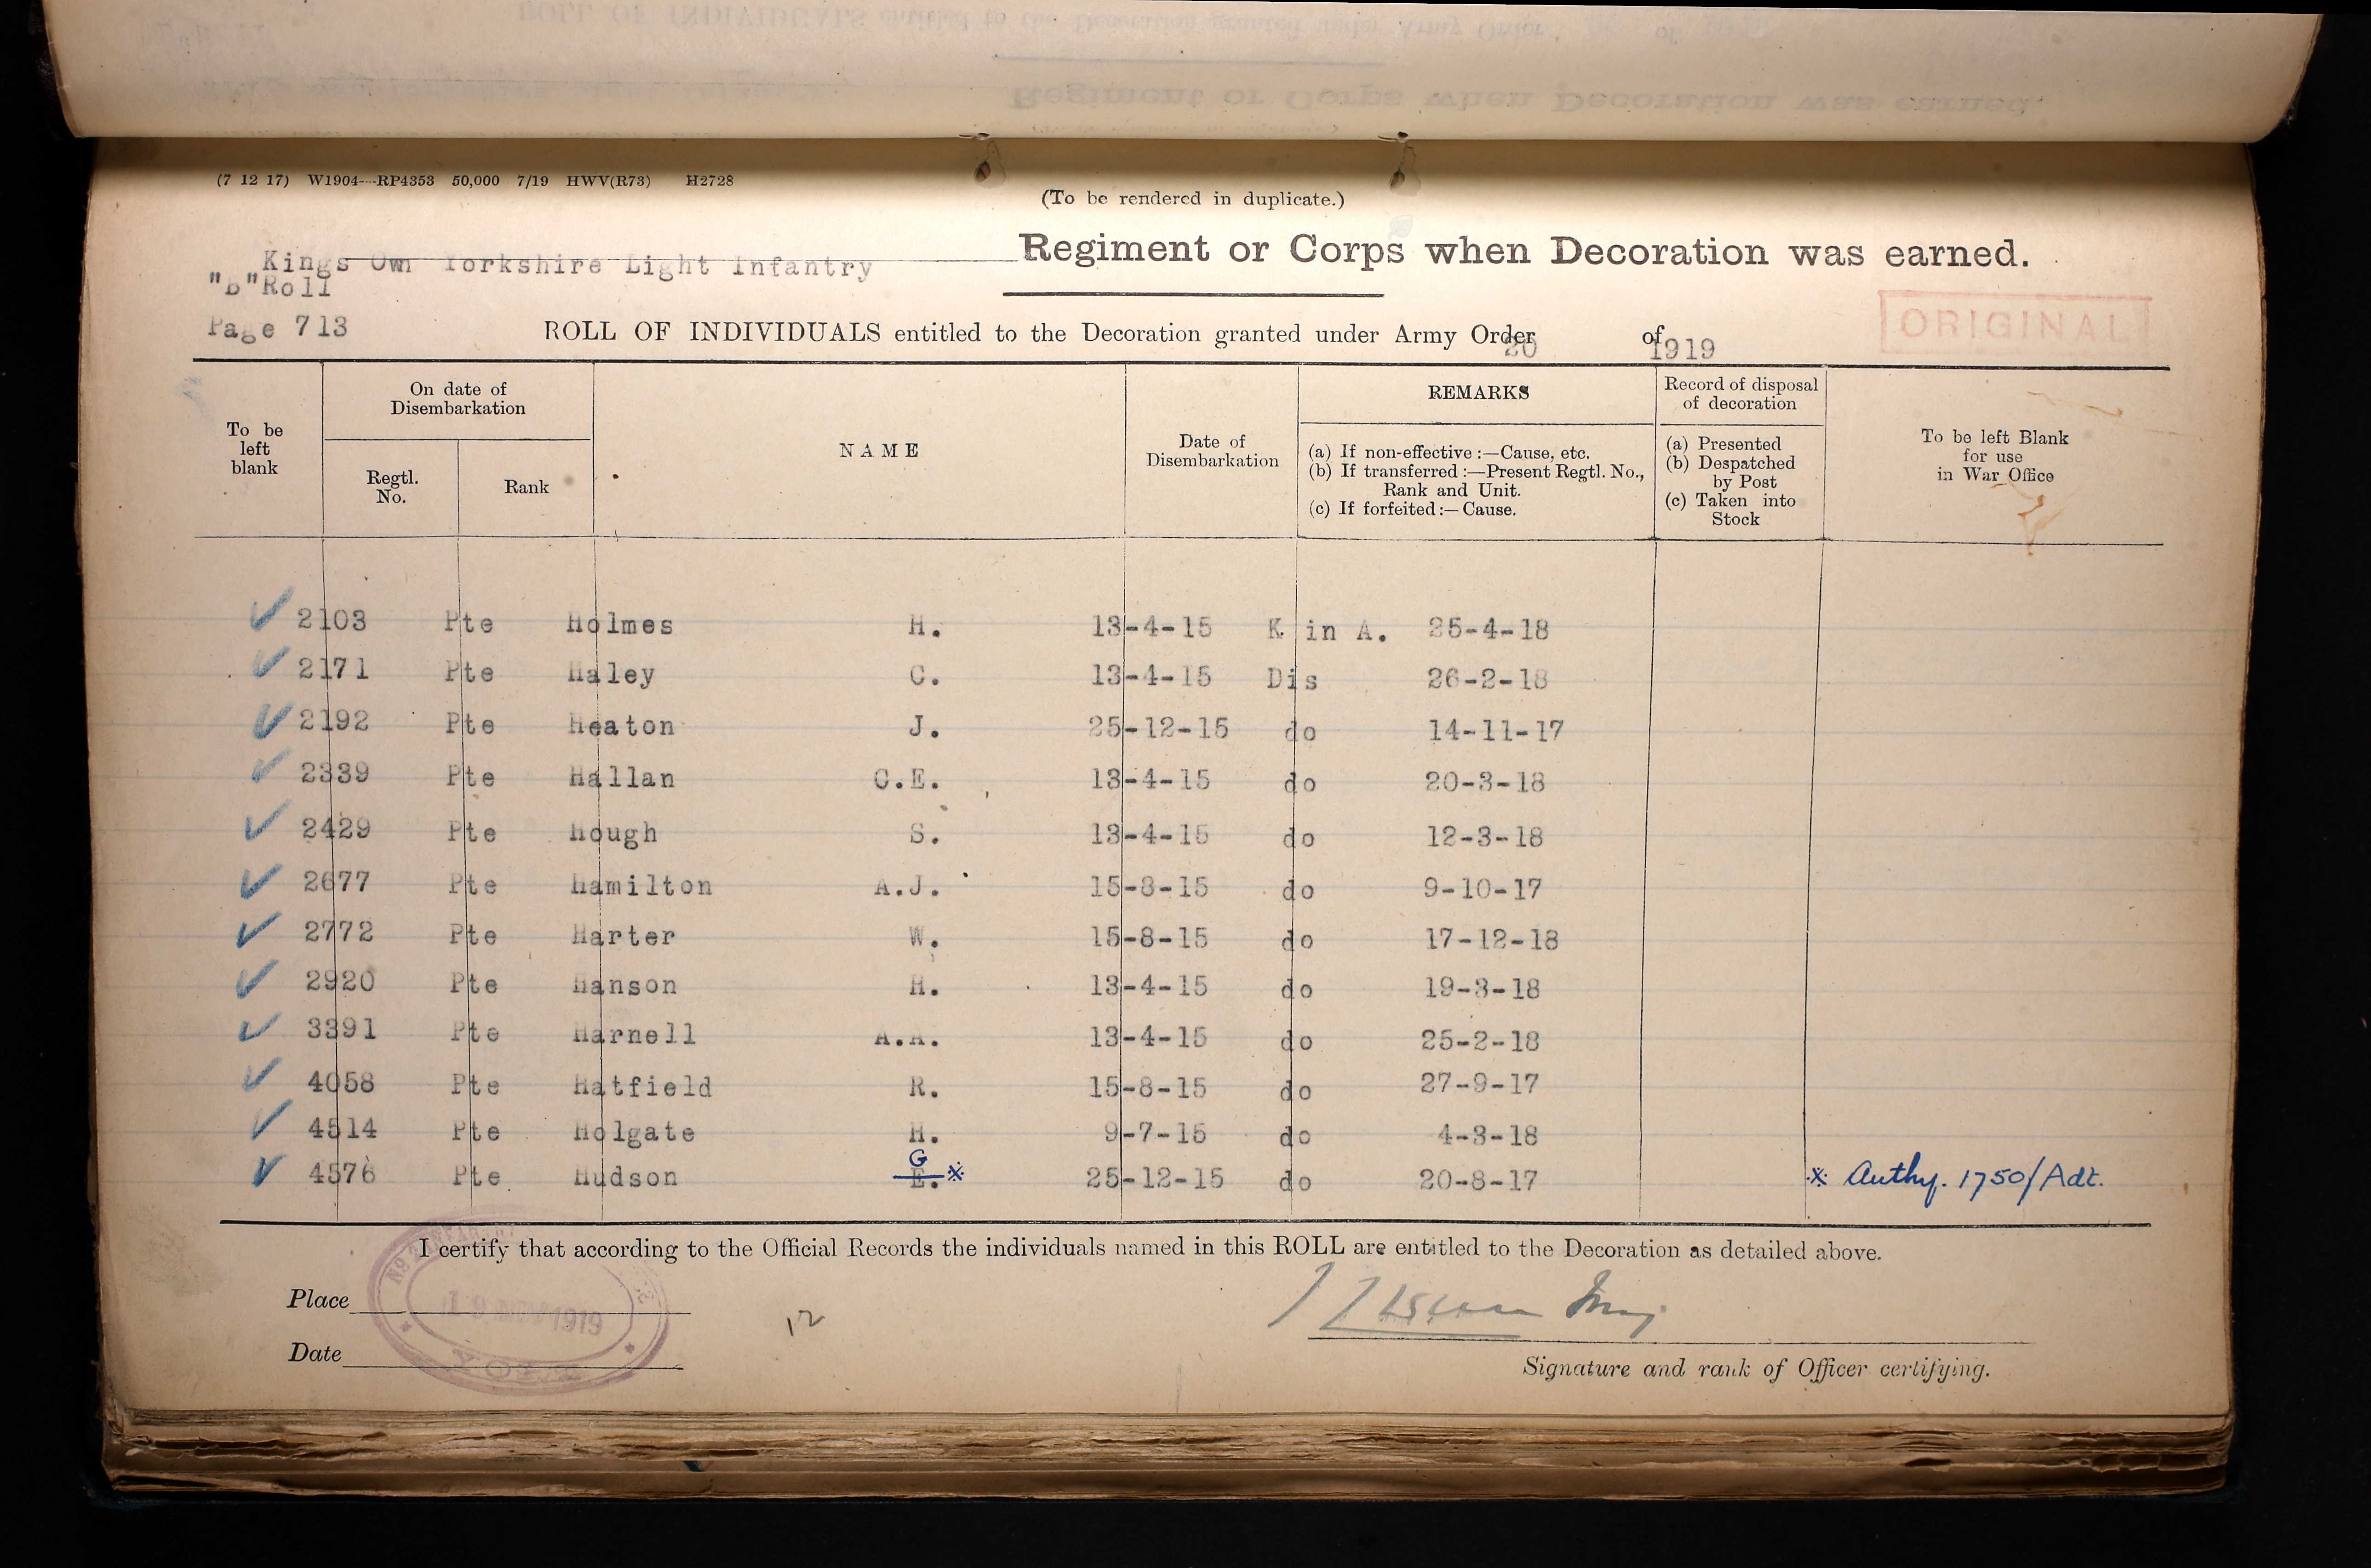 (7 12 17) W1904—RP4353 50,000 7/19 HWV(R73) H2728
(To be rendered in duplicate.)
Kings Own Yorkshire Light Infantry Regiment or Corps when Decoration was earned.
"B"Roll
Page 713
ROLL OF INDIVIDUALS entitled to the Decoration granted under Army Order 20 of 1919
ORIGINAL
To be left blank
On date of Disembarkation
Regtl. No.
Rank
NAME
Date of Disembarkation
REMARKS
(a) If non-effective :—Cause, etc.
(b) If transferred :—Present Regtl. No.,
Rank and Unit.
(c) If forfeited :— Cause.
Record of disposal
of decoration
(a) Presented
(b) Despatched
by Post
(c) Taken into
Stock
To be left Blank
for use
in War Office
2103 Pte Holmes H. 13-4-15 K in A. 25-4-18
2171 Pte Haley C. 13-4-15 Dis 26-2-18
2192 Pte Heaton J. 25-12-15 do 14-11-17
2339 Pte Hallan C.E. 13-4-15 do 20-3-18
2429 Pte Hough S. 13-4-15 do 12-3-18
2677 Pte Hamilton A.J. 15-8-15 do 9-10-17
2772 Pte Harter W. 15-8-15 do 17-12-18
2920 Pte Hanson H. 13-4-15 do 19-3-18
3391 Pte Harnell 13-4-15 do 25-2-18
4058 Pte Hatfield R. 15-8-15 do 27-9-17
4514 Pte Holgate H. 9-7-15 do 4-3-18
G
4576 Pte Hudson E. 25-12-15 do 20-8-17 Authy. 1750/Adt.
I certify that according to the Official Records the individuals named in this ROLL are entitled to the Decoration as detailed above.
Place
1919
YORK
12
Date
Signature and rank of Officer certifying.